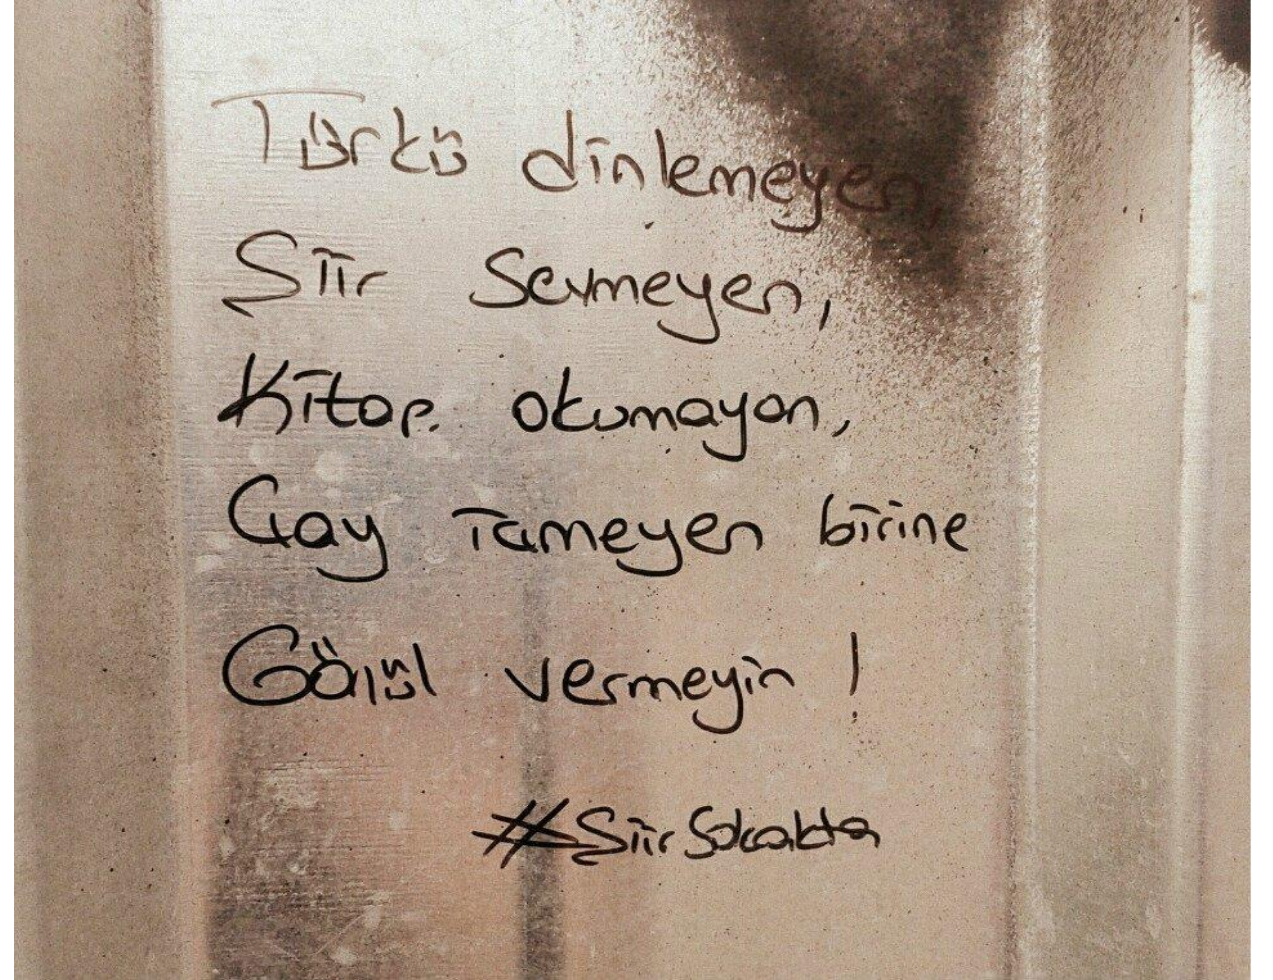 Türkü dinlemeyen,
Şiir Sevmeyen,
Kitap okumayan,
Çay içmeyen birine
Gönül vermeyin !
#ŞiirSokakta